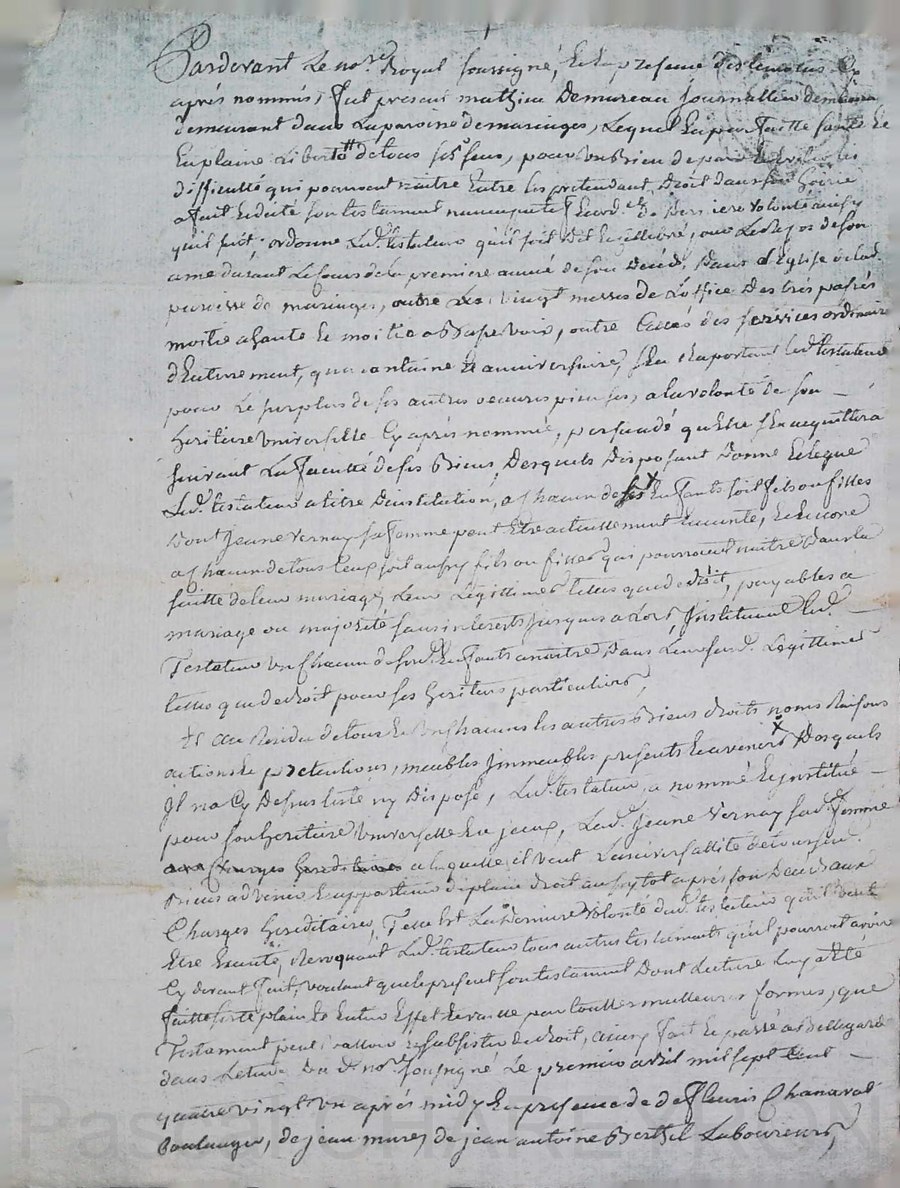 Pardevant Le no.re Royal soussigné, Et En presence des temoins Cy
après nommés, fut present mathieu Demureau journallier
demeurant dans La paroisse de maringes, Lequel En parfaitte santé Et
En plaine Liberté de tous ses sens, pour un Bien de paix
difficulté qui pourroient naitre Entre les pretendant Droit dans son hoirie
a fait Et dicté son testament nuncupatif Et ord.e de Derniere volonté ainsy
quil suit. ordonne Led. testateur qu'il soit dit Et cellebré, au Le repos de son
ame durant Le cours de la premiere année de son Decéds, Dans L'Eglise de lad.
paroisse de maringes, outre Les vingt messes de L'office Des tres passés
moitié a haute Et moitié a Basse voix, outre Celles des services ordinaire
d'Enterrement, quarantaine Et anniversaire, s'En raportant Led. testateur
pour Le surplus de ses autres oeuvres pieuses, a la volonté de son
heritiere universelle Cy après nommée, persuadé qu'Elle s'En acquittera
suivant La faculté de ses Biens, Desquels Disposant Donne Et Legue
Led. testateur a titre D'institution, a chacun de ses Enfants soit fils ou filles
Dont jeanne Vernay sa femme peut Etre actuellement Enceinte, Et Encore
a chacun de tous Ceux soit aussy fils ou filles qui pourroient naitre Dans la
suitte de leur mariage, Leur Légittime telle que de droit, payables a
mariage ou majorité sans interets jusques a Lors, jnstituant led.
Testateur un chacun de sesd. Enfants a naitre Dans Leursusd. Légittime
telle que de droit pour ses heritiers particuliers,
Et au Residu de tous Et un chacuns les autres Biens droits noms Raisons
actions Et prétentions, meubles jmmeubles presents Et avenirs Desquels
Jl na Cy Dessus testé ny Disposé, Led. testateur a nommé Et jnstitué
pour son heritiere universelle En jceux, Lad. Jeanne Vernay sad. femme
aux Charges hereditaires a laquelle il veut L'universallité de tous sesd.
Biens advenir Et appartenir de plain droit aussytot après son Decéds aux
Charges hereditaires, Telle Est La Derniere volonté dud. testateur qu'il veut
Etre Executé, Revoquant Led. testateur tous autres testaments qu'il pourroit avoir
Cy devant fait, voulant que le present son testament Dont Lecture Luy a Eté
faitte sorte plain Et Entier Effet Et vaille par toutte meilleures formes, que
Testament peut valloir Et subsister de droit, ainsy fait Et passé a Bellegarde
dans Letude Du d. no.re soussigné Le premier avril mil sept Cent
quatre vingt un après midy En presence de de fleuris Chanaval
Boulanger, de jean murez, de jean antoine Berthel Laboureurs,
Pascal CHARETRON